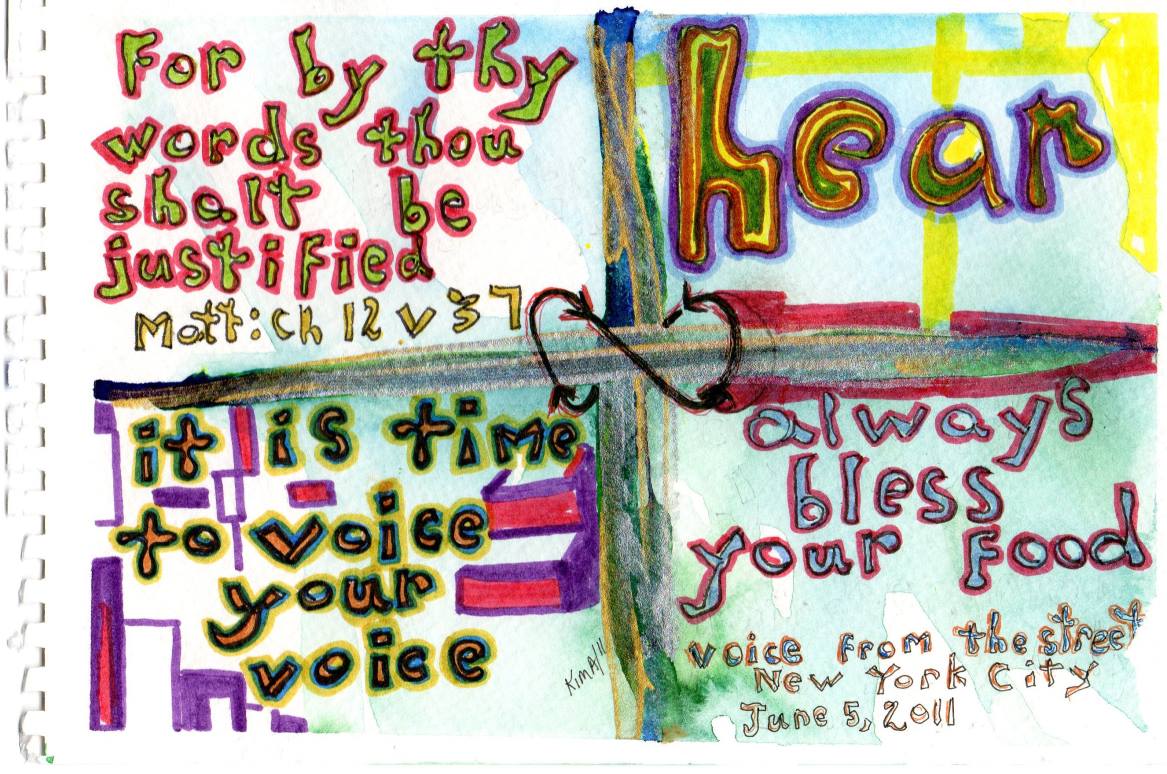 For by thy
words thou
shalt be
justified
Matt: ch 12 v 37
hear
it is time
to voice
your
voice
KIMA/11
always
bless
your food
voice from the street
New York City
June 5, 2011